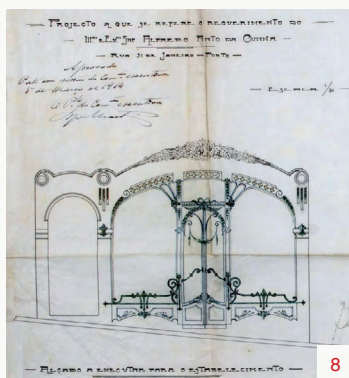 — PROJECTO A QUE SE REFERE O REQUERIMENTO DO
ILL.mo E EX.mo SNR ALFREDO PINTO DA CUNHA
— RUA 31 DE JANEIRO — PORTO —
Approvado
5 de Março de 1914
— ESCALA 1/
— ALÇADO A EXECUTAR PARA O ESTABELECIMENTO —
8